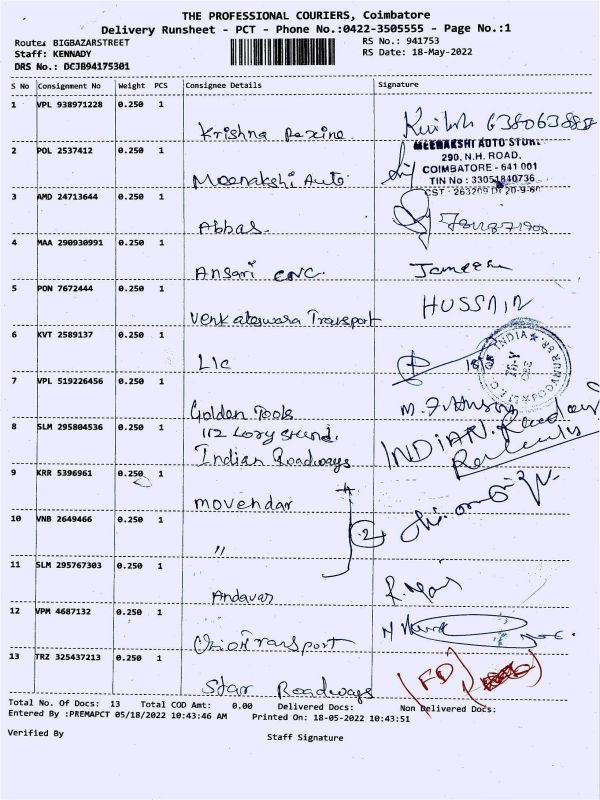 THE PROFESSIONAL COURIERS, Coimbatore
Delivery Runsheet - PCT - Phone No.:0422-3505555 - Page No.:1
Route: BIGBAZARSTREET
RS No.: 941753
Staff: KENNADY
RS Date: 18-May-2022
DRS No.: DCJB94175301
S No Consignment No Weight PCS Consignee Details Signature
1 VPL 938971228 0.250 1
Krishna Rexine 6380638888
2 POL 2537412 0.250 1
MEENAKSHI AUTO STORE
290. N.H. ROAD,
COIMBATORE - 641 001
TIN No : 33051840736
Meenakshi Auto
CST : 263209 Dt 20-9-60
3 AMD 24713644 0.250 1
Abbas
4 MAA 290930991 0.250 1
Ansari CNC Jameesu
5 PON 7672444 0.250 1
HUSSAIN
Venkateswara Transport
6 KVT 2589137 0.250 1
Lic
7 VPL 519226456 0.250 1
Golden Tools M.
8 SLM 295804536 0.250 1
112 Lory stund.
Indian Roadways INDIAN
9 KRR 5396961 0.250 1
movendar
10 VNB 2649466 0.250 1
" 2
11 SLM 295767303 0.250 1
Andavar
12 VPM 4687132 0.250 1
Orion Transport
13 TRZ 325437213 0.250 1
Star Roadways (FD)
Total No. Of Docs: 13 Total COD Amt: 0.00 Delivered Docs: Non Delivered Docs:
Entered By :PREMAPCT 05/18/2022 10:43:46 AM Printed On: 18-05-2022 10:43:51
Verified By Staff Signature